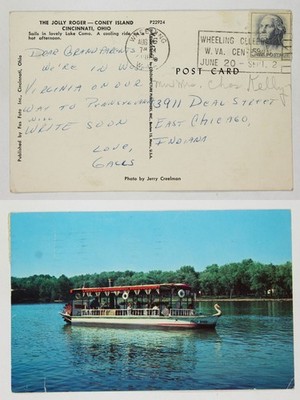 THE JOLLY ROGER — CONEY ISLAND
CINCINNATI, OHIO
Sails in lovely Lake Como. A cooling ride
hot afternoon.
P22924
WHEELING CELEB
W. VA. CEN-
JUNE 20 – SEPT. 2
POST CARD
DEAR GRANDPARENTS,
WE'RE IN WEST
VIRGINIA ON OUR
WAY TO
WILL
WRITE SOON
LOVE,
Mr & Mrs. Chas Kelly
3911 DEAL STREET
EAST CHICAGO,
INDIANA
Published by Fox Foto, Inc., Cincinnati, Ohio
Photo by Jerry Creelman